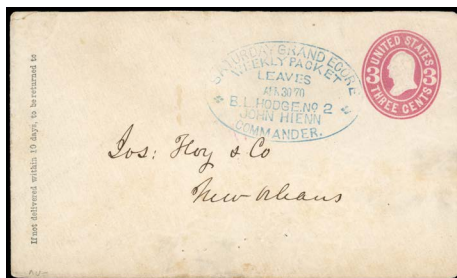 If not delivered within 10 days, to be returned to
SATURDAY GRAND ECORE
WEEKLY PACKET
LEAVES
30 70
B.L. HODGE No 2
JOHN HIENN
COMMANDER.
UNITED STATES
3 3
THREE CENTS
Jos: Hoy & Co
New Orleans